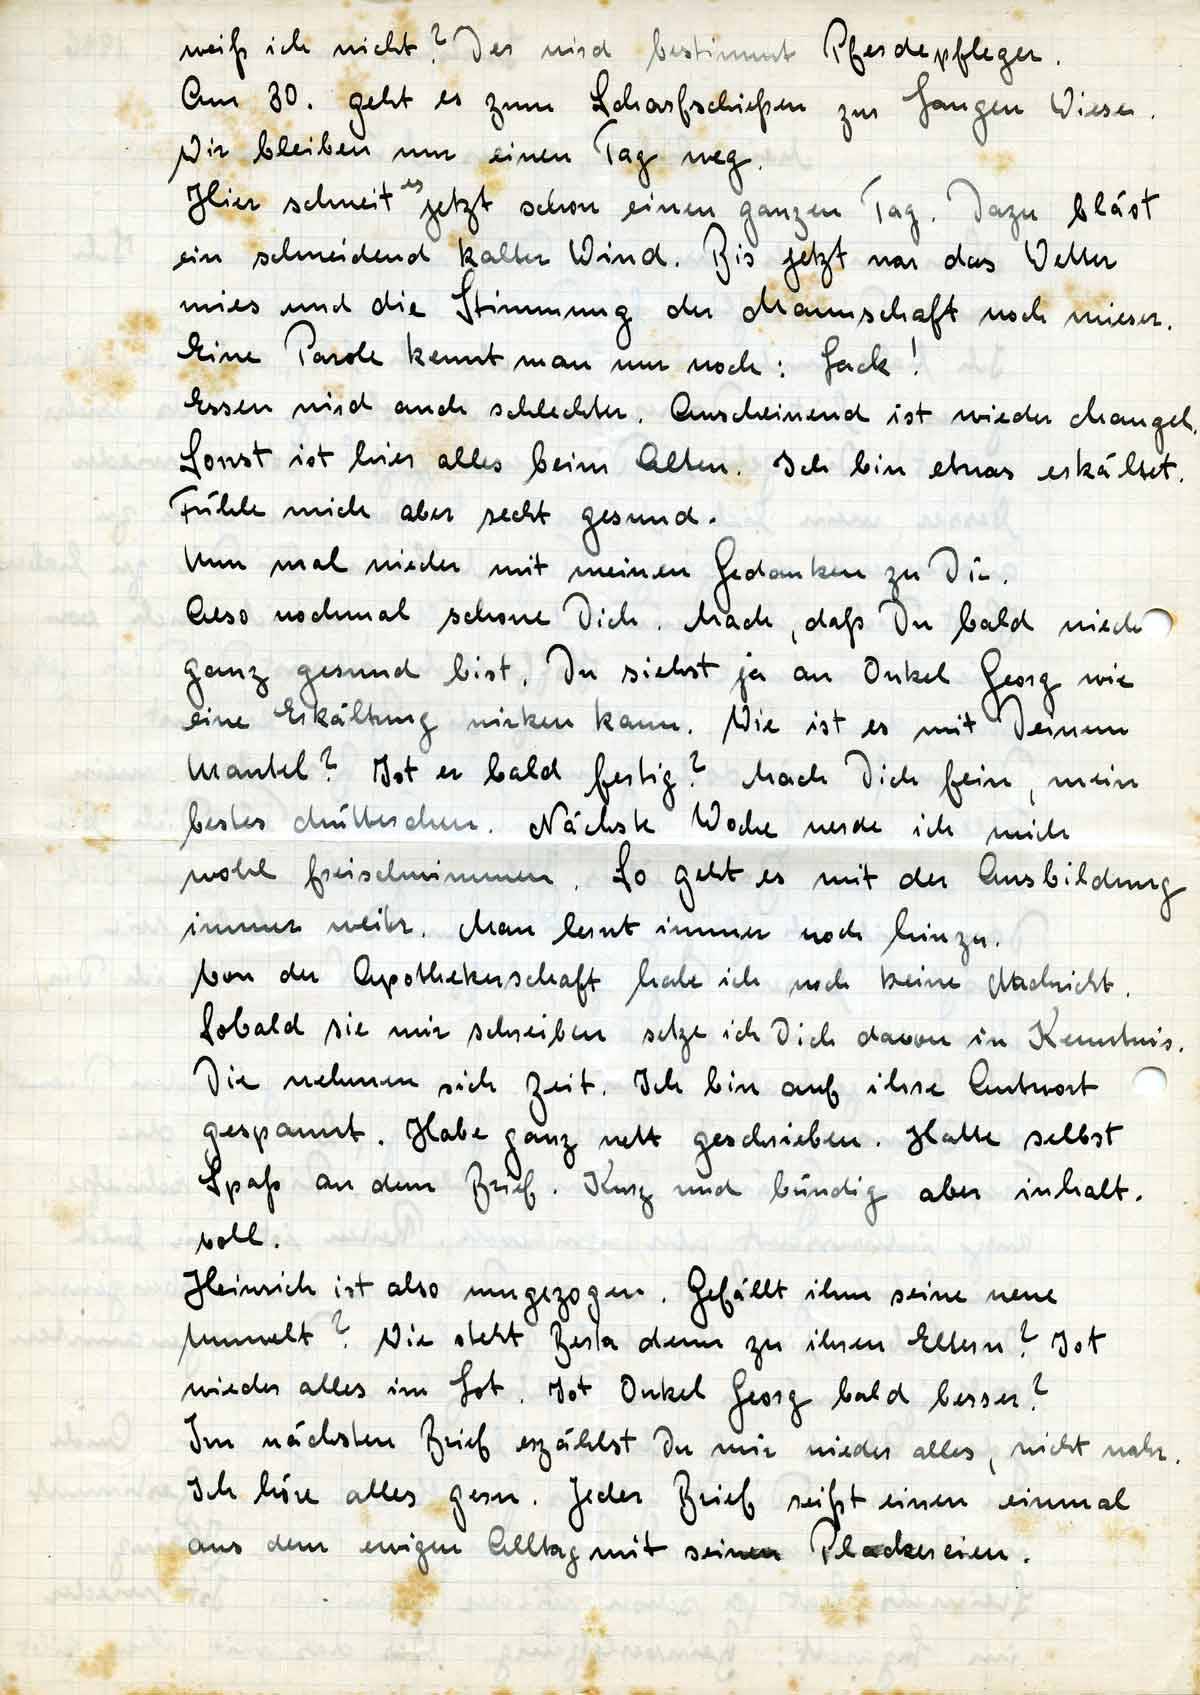 weiß ich nicht? Der wird bestimmt Pferdepfleger.
Am 30. geht es zum Scharfschießen zur Langen Wiese.
Wir bleiben nur einen Tag weg.
Hier schneit es jetzt schon einen ganzen Tag. Dazu bläst
ein schneidend kalter Wind. Bis jetzt war das Wetter
mies und die Stimmung der Mannschaft noch mieser.
Eine Parole kennt man nur noch: Sack!
Essen wird auch schlechter. Anscheinend ist wieder Mangel.
Sonst ist hier alles beim Alten. Ich bin etwas erkältet.
Fühle mich aber recht gesund.
Nun mal wieder mit meinen Gedanken zu Dir.
Also nochmal schone Dich. Mach, daß Du bald wieder
ganz gesund bist. Du siehst ja an Onkel Georg wie
eine Erkältung wirken kann. Wie ist es mit Deinem
Mantel? Ist er bald fertig? Mach Dich fein, mein
bestes Mütterchen. Nächste Woche werde ich mich
wohl freischwimmen. So geht es mit der Ausbildung
immer weiter. Man lernt immer noch hinzu.
Von der Apothekerschaft habe ich noch keine Nachricht.
Sobald sie mir schreiben setze ich Dich davon in Kenntnis.
Die nehmen sich Zeit. Ich bin auf ihre Antwort
gespannt. Habe ganz nett geschrieben. Hatte selbst
Spaß an dem Brief. Kurz und bündig aber inhalt-
voll.
Heinrich ist also umgezogen. Gefällt ihm seine neue
Umwelt? Wie steht Berta denn zu ihren Eltern? Ist
wieder alles im Lot. Ist Onkel Georg bald besser?
Im nächsten Brief erzählst Du mir wieder alles, nicht wahr.
Ich höre alles gern. Jeder Brief reißt einen einmal
aus dem ewigen Alltag mit seinen Plackereien.